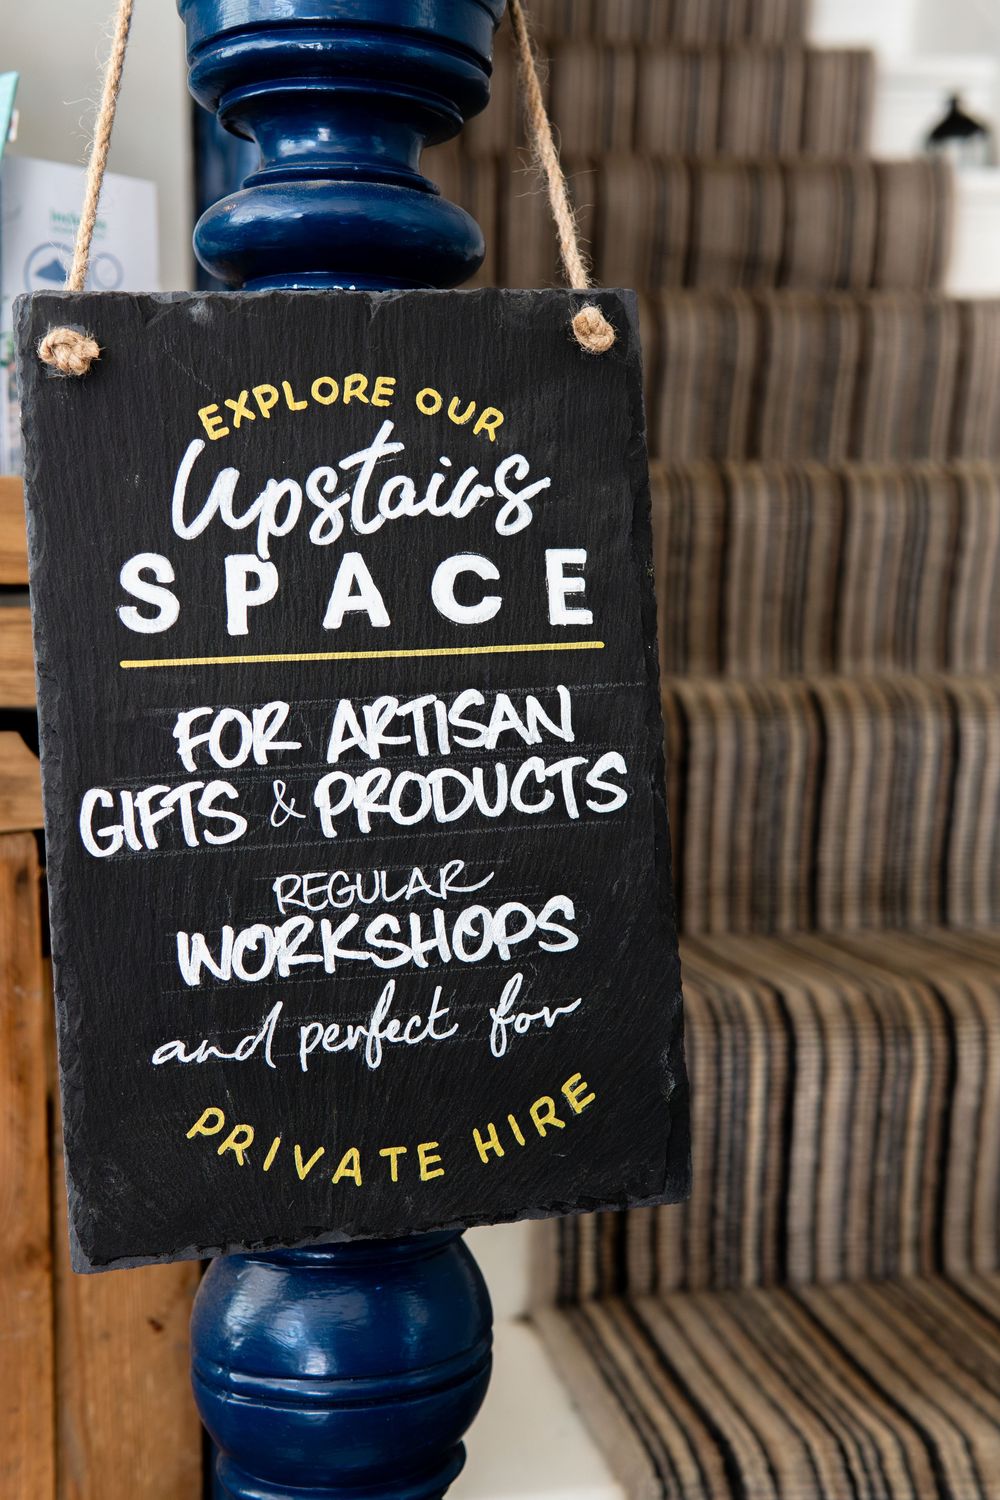 EXPLORE OUR
Upstairs
SPACE
FOR ARTISAN
GIFTS & PRODUCTS
REGULAR
WORKSHOPS
and perfect for
PRIVATE HIRE